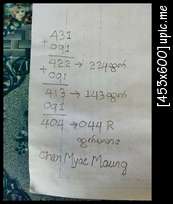 431
+ 091
422 → 224ချက်
+ 091
413 → 143ချက်
091
404 → 044 R
Chan Myae Maung
[453x600] uplc.me